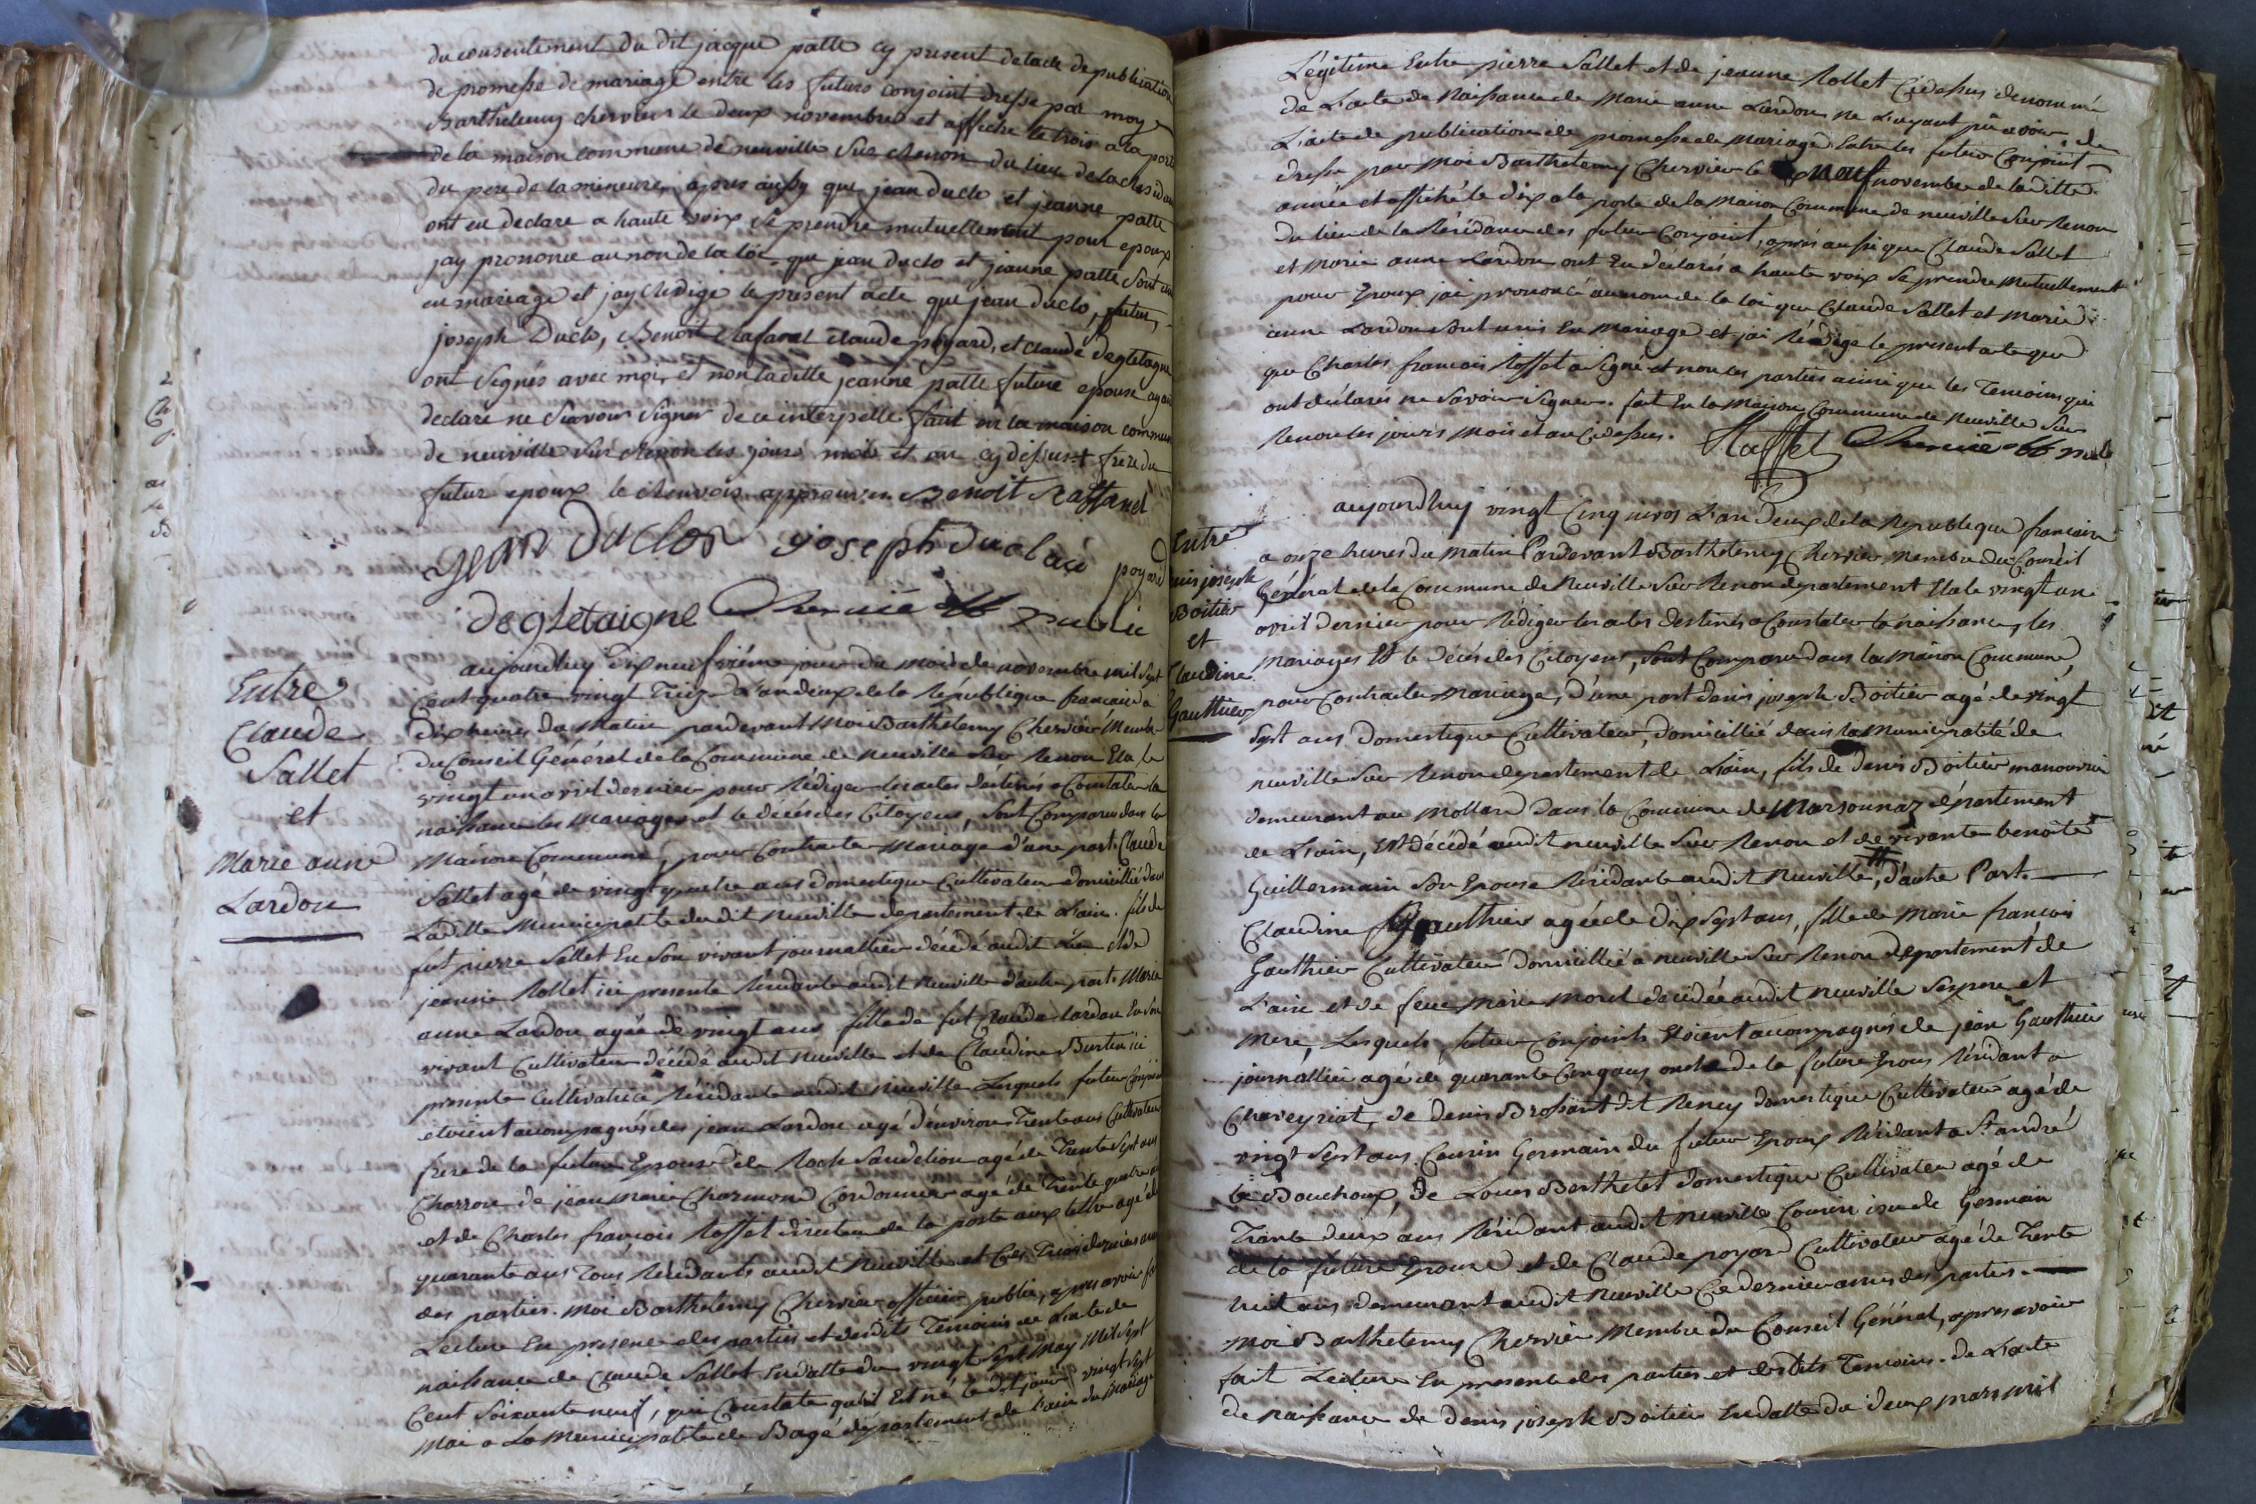 du consentement du dit jacque patte cy present de lacte de publication
de promesse de mariage entre les futurs conjoint dresse par moy
Barthelemy chervier le deux novembre et affiche le trois a la porte
de la maison commune de neuville sur renon du lieu de la residan
du pere de la mineure, apres aussy que jean duclo et jeanne patte
ont eu declare a haute voix se prendre mutuellement pour epoux
jay prononce au non de la loi que jean duclo et jeanne patte sont uni
en mariage et jay redige le present acte que jean duclo, futur,
joseph Duclo, Benoit claude poyard, et claude degletagne
ont signés avec moi, et non laditte jeanne patte future epouse ayan
declare ne scavoir signer de ce interpelle fait en la maison commun
de neuville sur renon les jours mois et an cy dessus + frere du
futur epoux le renvois approuver Benoit Raffanel
jean Duclos joseph duclaú poyard
degletaigne Chervié off public
Entre
Claude
Sallet
et
Marie anne
Lardon
aujourdhuy dix neufvième jour du mois de novembre mil sept
cent quatre vingt treize L'an deux de la République francaise a
dix heures du Matin pardevant Moi Barthelemy Chervier Membre
du Conseil Général de la Commune de Neuville sur Renon Elu le
vingt un avril dernier pour Rédiger les actes destinés a Constater la
naissance les Mariages et le décés des Citoyens, sont Comparu dans la
Maison Commune, pour Contracter Mariage d'une part Claude
Sallet agé de vingt quatre ans domestique Cultivateur domicilié dans
Laditte Municipalité du dit Neuville departement de L'ain. fils de
fut pierre Sallet En son vivant journallier décédé audit Lieu et de
jeanne Rollet ici presente Résidante audit Neuville d'autre part Marie
anne Lardon agée de vingt ans fille de fut Claude Lardon En son
vivant Cultivateur décédé audit Neuville et de Claudine Burtin ici
presente Cultivatrice Résidante audit Neuville Lesquels futur Conjoint
etoient accompagnés de jean Lardon agé d'environ Trente ans Cultivateur
frere de la future Epouse de Roch Saudelion agé de Trente Sept ans
Charron de jean Marie Charmond Cordonnier agé de Trente quatre ans
et de Charles françois Roffet directeur de la poste aux lettre agé de
quarante ans Tous Résidants audit Neuville et Ces Trois derniers amis
des parties. Moi Barthelemy Chervier officier public, apres avoir fait
Lecture En presence des parties et desdits Temoins de L'acte de
naissance de Claude Sallet En datte du vingt Sept May Mil Sept
Cent Soixante neuf, qui Constate qu'il Est né le dit jour vingt Sept
Mai a La Municipalité de Bagé département de L'ain du Mariage
Légitime Entre pierre Sallet et de jeanne Rollet Cidessus denommé
de L'acte de Naissance de Marie anne Lardon ne L'ayant pû avoir, de
L'acte de publication de promesse de Mariage Entre les futur Conjoint
dressé par Moi Barthelemy Chervier le neuf novembre de laditte
année et affiché le dix a la porte de la Maison Commune de neuville Sur Renon
du lieu de la Résidance des futur Conjoint, après aussi que Claude Sallet
et Marie anne Lardon ont Eu declarés a haute voix Se prendre Mutuellement
pour Epoux jai prononcé au nom de la loi que Claude Sallet et Marie
anne Lardon Sont unis En Mariage et jai Rédigé le present acte que
que Charles francois Roffet a Signé et non les parties ainsi que les Temoins qui
ont déclarés ne Savoir Signer. fait En la Maison Commune de Neuville Sur
Renon les jours Mois et an Cidessus. Raffet Chervié off public
Entre
Denis joseph
Boitier
et
Claudine
Gauthier
aujourdhuy vingt Cinq nivos L'an deux de la Republique francaise
a onze heures du Matin Pardevant Barthelemy Chervier Membre du Conseil
Général de la Commune de Neuville Sur Renon departement Elu le vingt un
avril dernier pour Rédiger les actes destinés a Constater la naissance, les
Mariages Et le Décés des Citoyens, Sont Comparu dans la Maison Commune,
pour Contracter Mariage, d'une part denis joseph Boitier agé de vingt
Sept ans domestique Cultivateur, domicillié dans la Municipalité de
neuville Sur Renon departement de L'ain, fils de Denis Boitier manouvrier
demeurant au Mollard dans la Commune de Marsonnaz département
de L'ain, Est décédé audit neuville Sur Renon et de vivante benoite
Guillermain Son Epouse Résidante audit Neuville, d'autre Part
Claudine Gauthier agée de dix Sept ans, fille de Marie françois
Gauthier Cultivateur domicillié a neuville Sur Renon departement de
L'ain et de feue Marie Morel decédée audit Neuville Ses pere et
Mere, Lesquels futur Conjoints Etoient accompagnés de jean Gauthier
journallier agé de quarante Cinq ans oncle de la future Epouse Résidant a
Chaveyriat, de denis Brossard dit Rency domestique Cultivateur agé de
vingt Sept ans Cousin Germain du futur Epoux Résidant a St andré
le Bouchoux, de Louis Berthelet domestique Cultivateur agé de
Trente deux ans Résidant audit Neuville Cousin issu de Germain
de la future Epouse et de Claude poyard Cultivateur agé de Trente
huit ans demeurant audit Neuville Ce dernier amis des parties.
Moi Barthelemy Chervier Membre du Conseil Général, apres avoir
fait Lecture En presence des parties et desdits Temoins. de L'acte
de Naissance de denis joseph Boitier En datte du deux mars mil